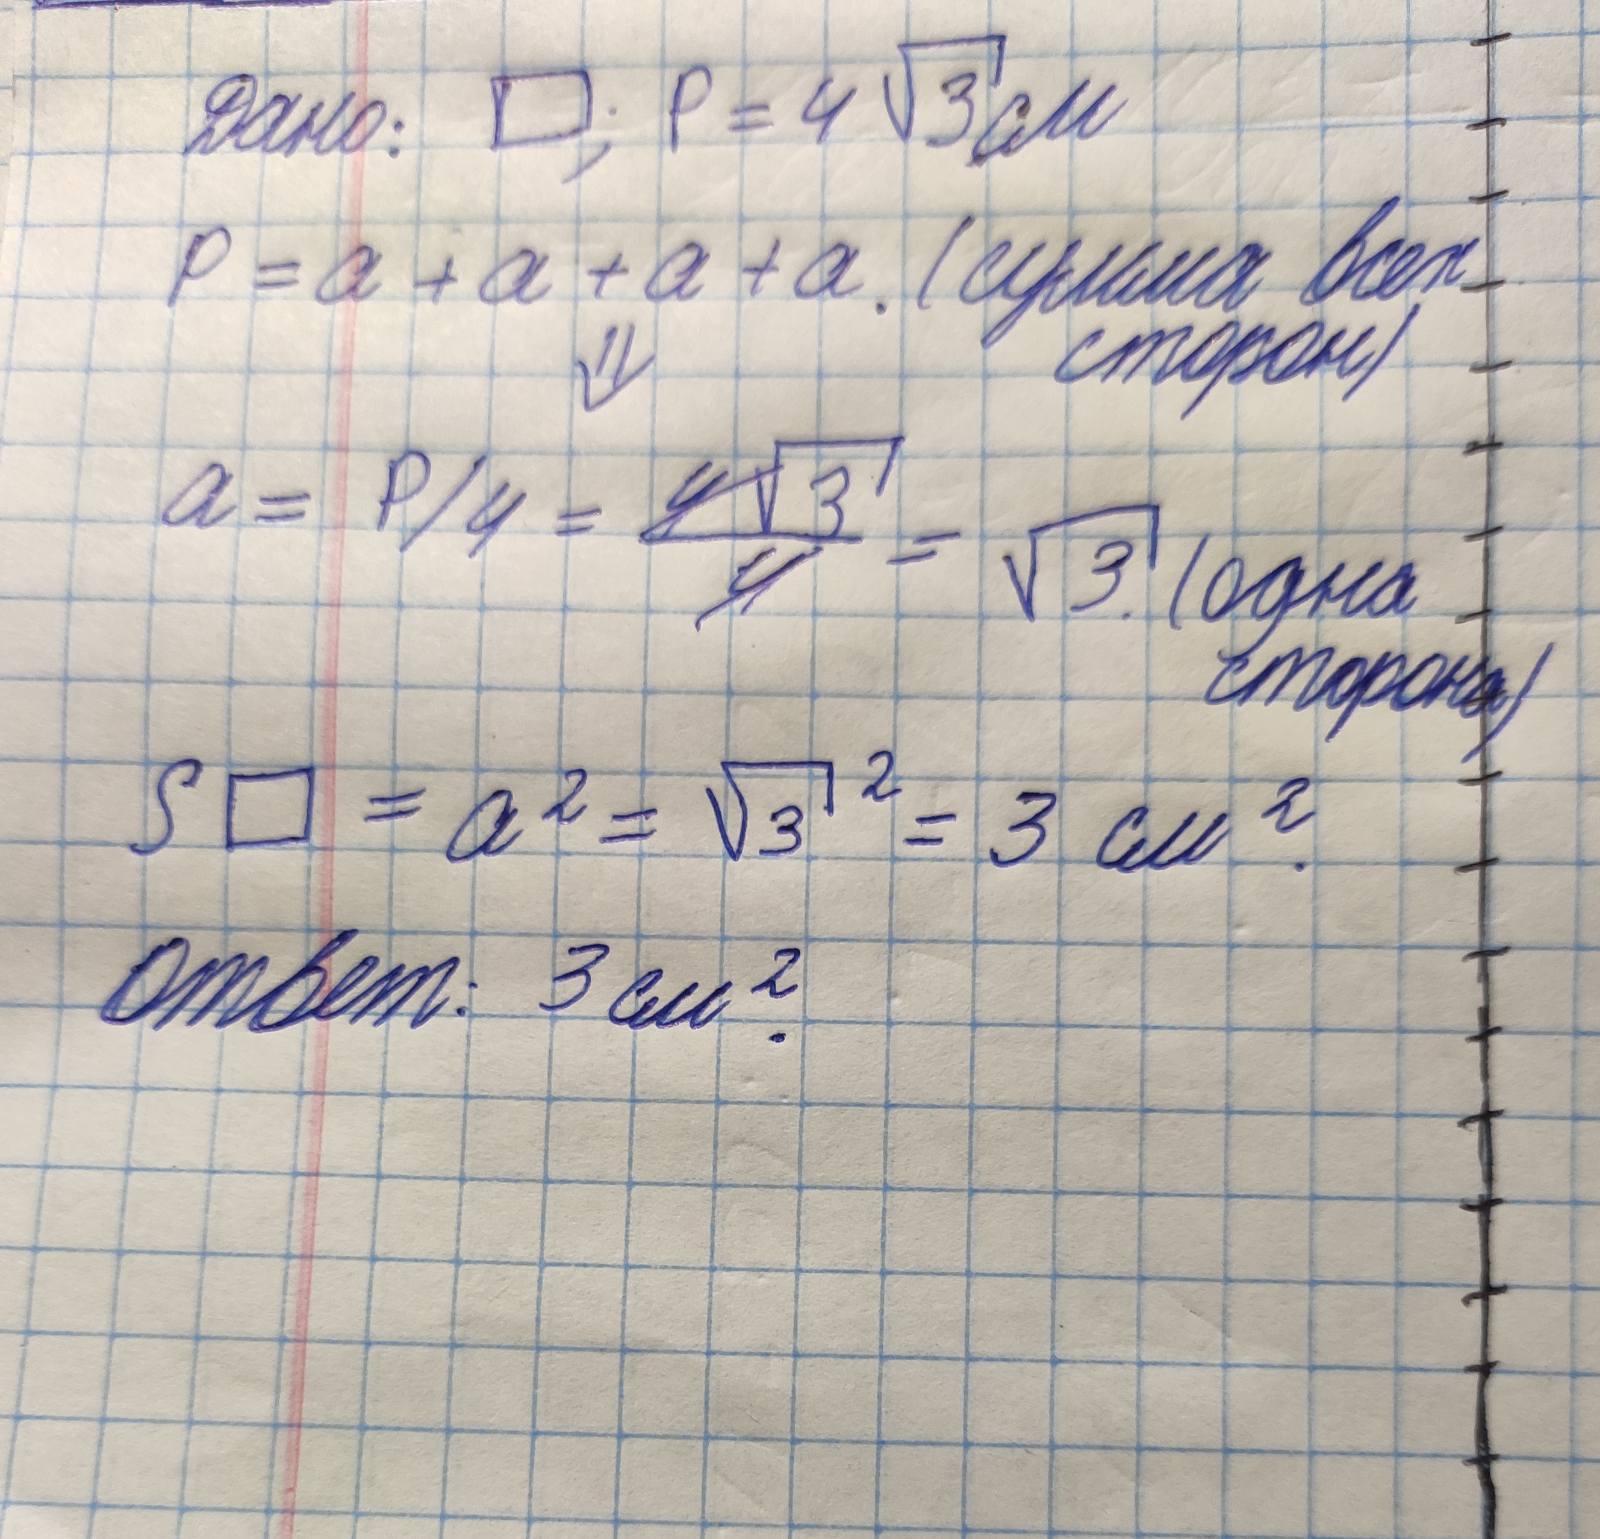 Дано: □; P = 4√3 см
P = a + a + a + a. (сумма всех
сторон)
⇓
a = P/4 = 4√3/4 = √3. (одна
сторона)
S□ = a² = √3² = 3 см².
Ответ: 3 см².